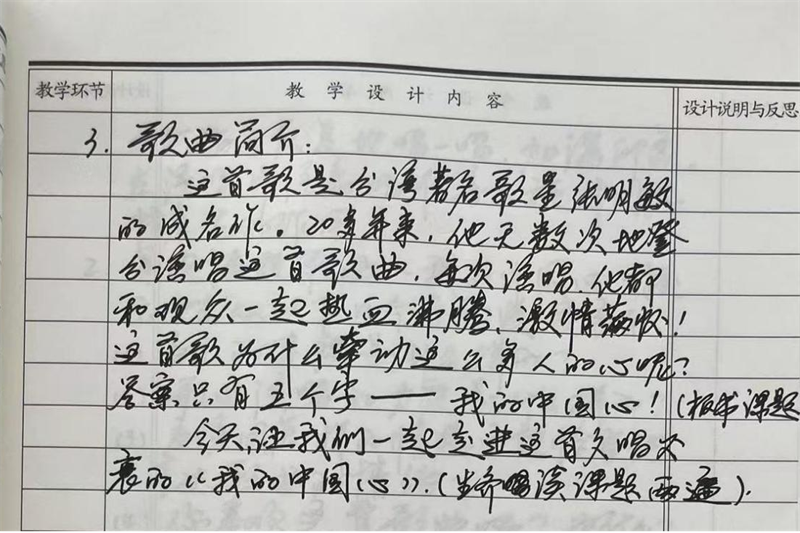 教学环节 教学设计内容 设计说明与反思
3. 歌曲简介：
这首歌是台湾著名歌星张明敏
的成名作。20多年来，他无数次地登
台演唱这首歌曲，每次演唱，他都
和观众一起热血沸腾、激情满怀！
这首歌为什么牵动这么多人的心呢？
答案只有五个字——我的中国心！（板书课题
今天，让我们一起走进这首久唱不
衰的《我的中国心》。（生齐读课题两遍）.